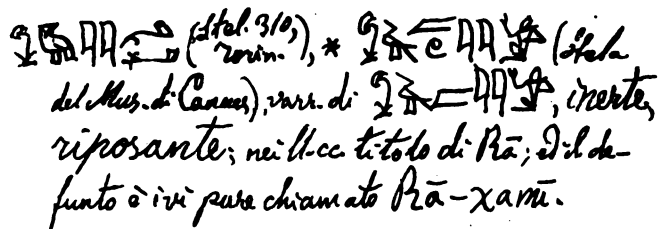 (Stel. 310, Torin.), * (stela
del Mus. di Cannes), varr. di , inerte,
riposante; nei ll. cc. titolo di Rā; ed il de-
funto è ivi pure chiamato Rā-χamī.